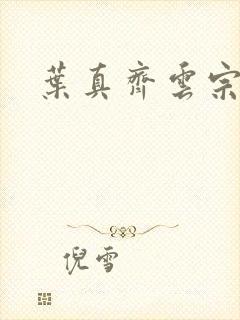 葉真齊雲宗
倪雪